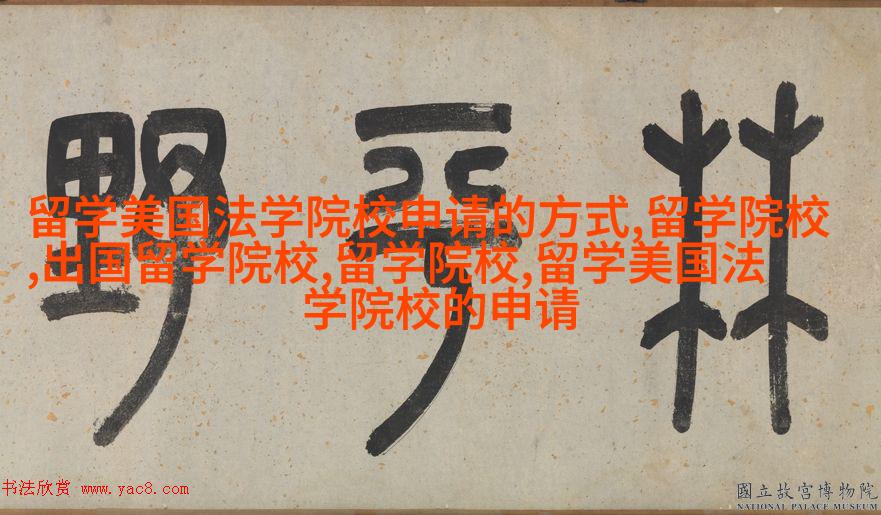 林平野
留学美国法学院校申请的方式,留学院校
,出国留学院校,留学院校,留学美国法
学院校的申请
书法欣赏 www.yac8.com
國立故宮博物院
NATIONAL PALACE MUSEUM